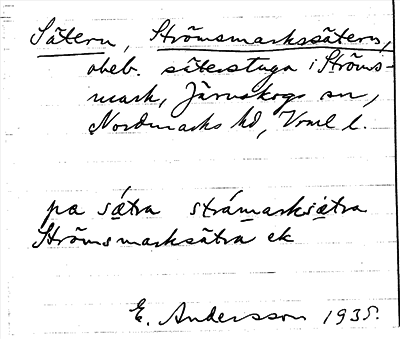 Sätern, Strömsmarkssätern,
obeb. säterstuga i Ströms-
mark, Järnskogs sn,
Nordmarks hd, Vrml l.
pa sátra strámarksátra
Strömsmarksätra ek
E. Andersson 1935.